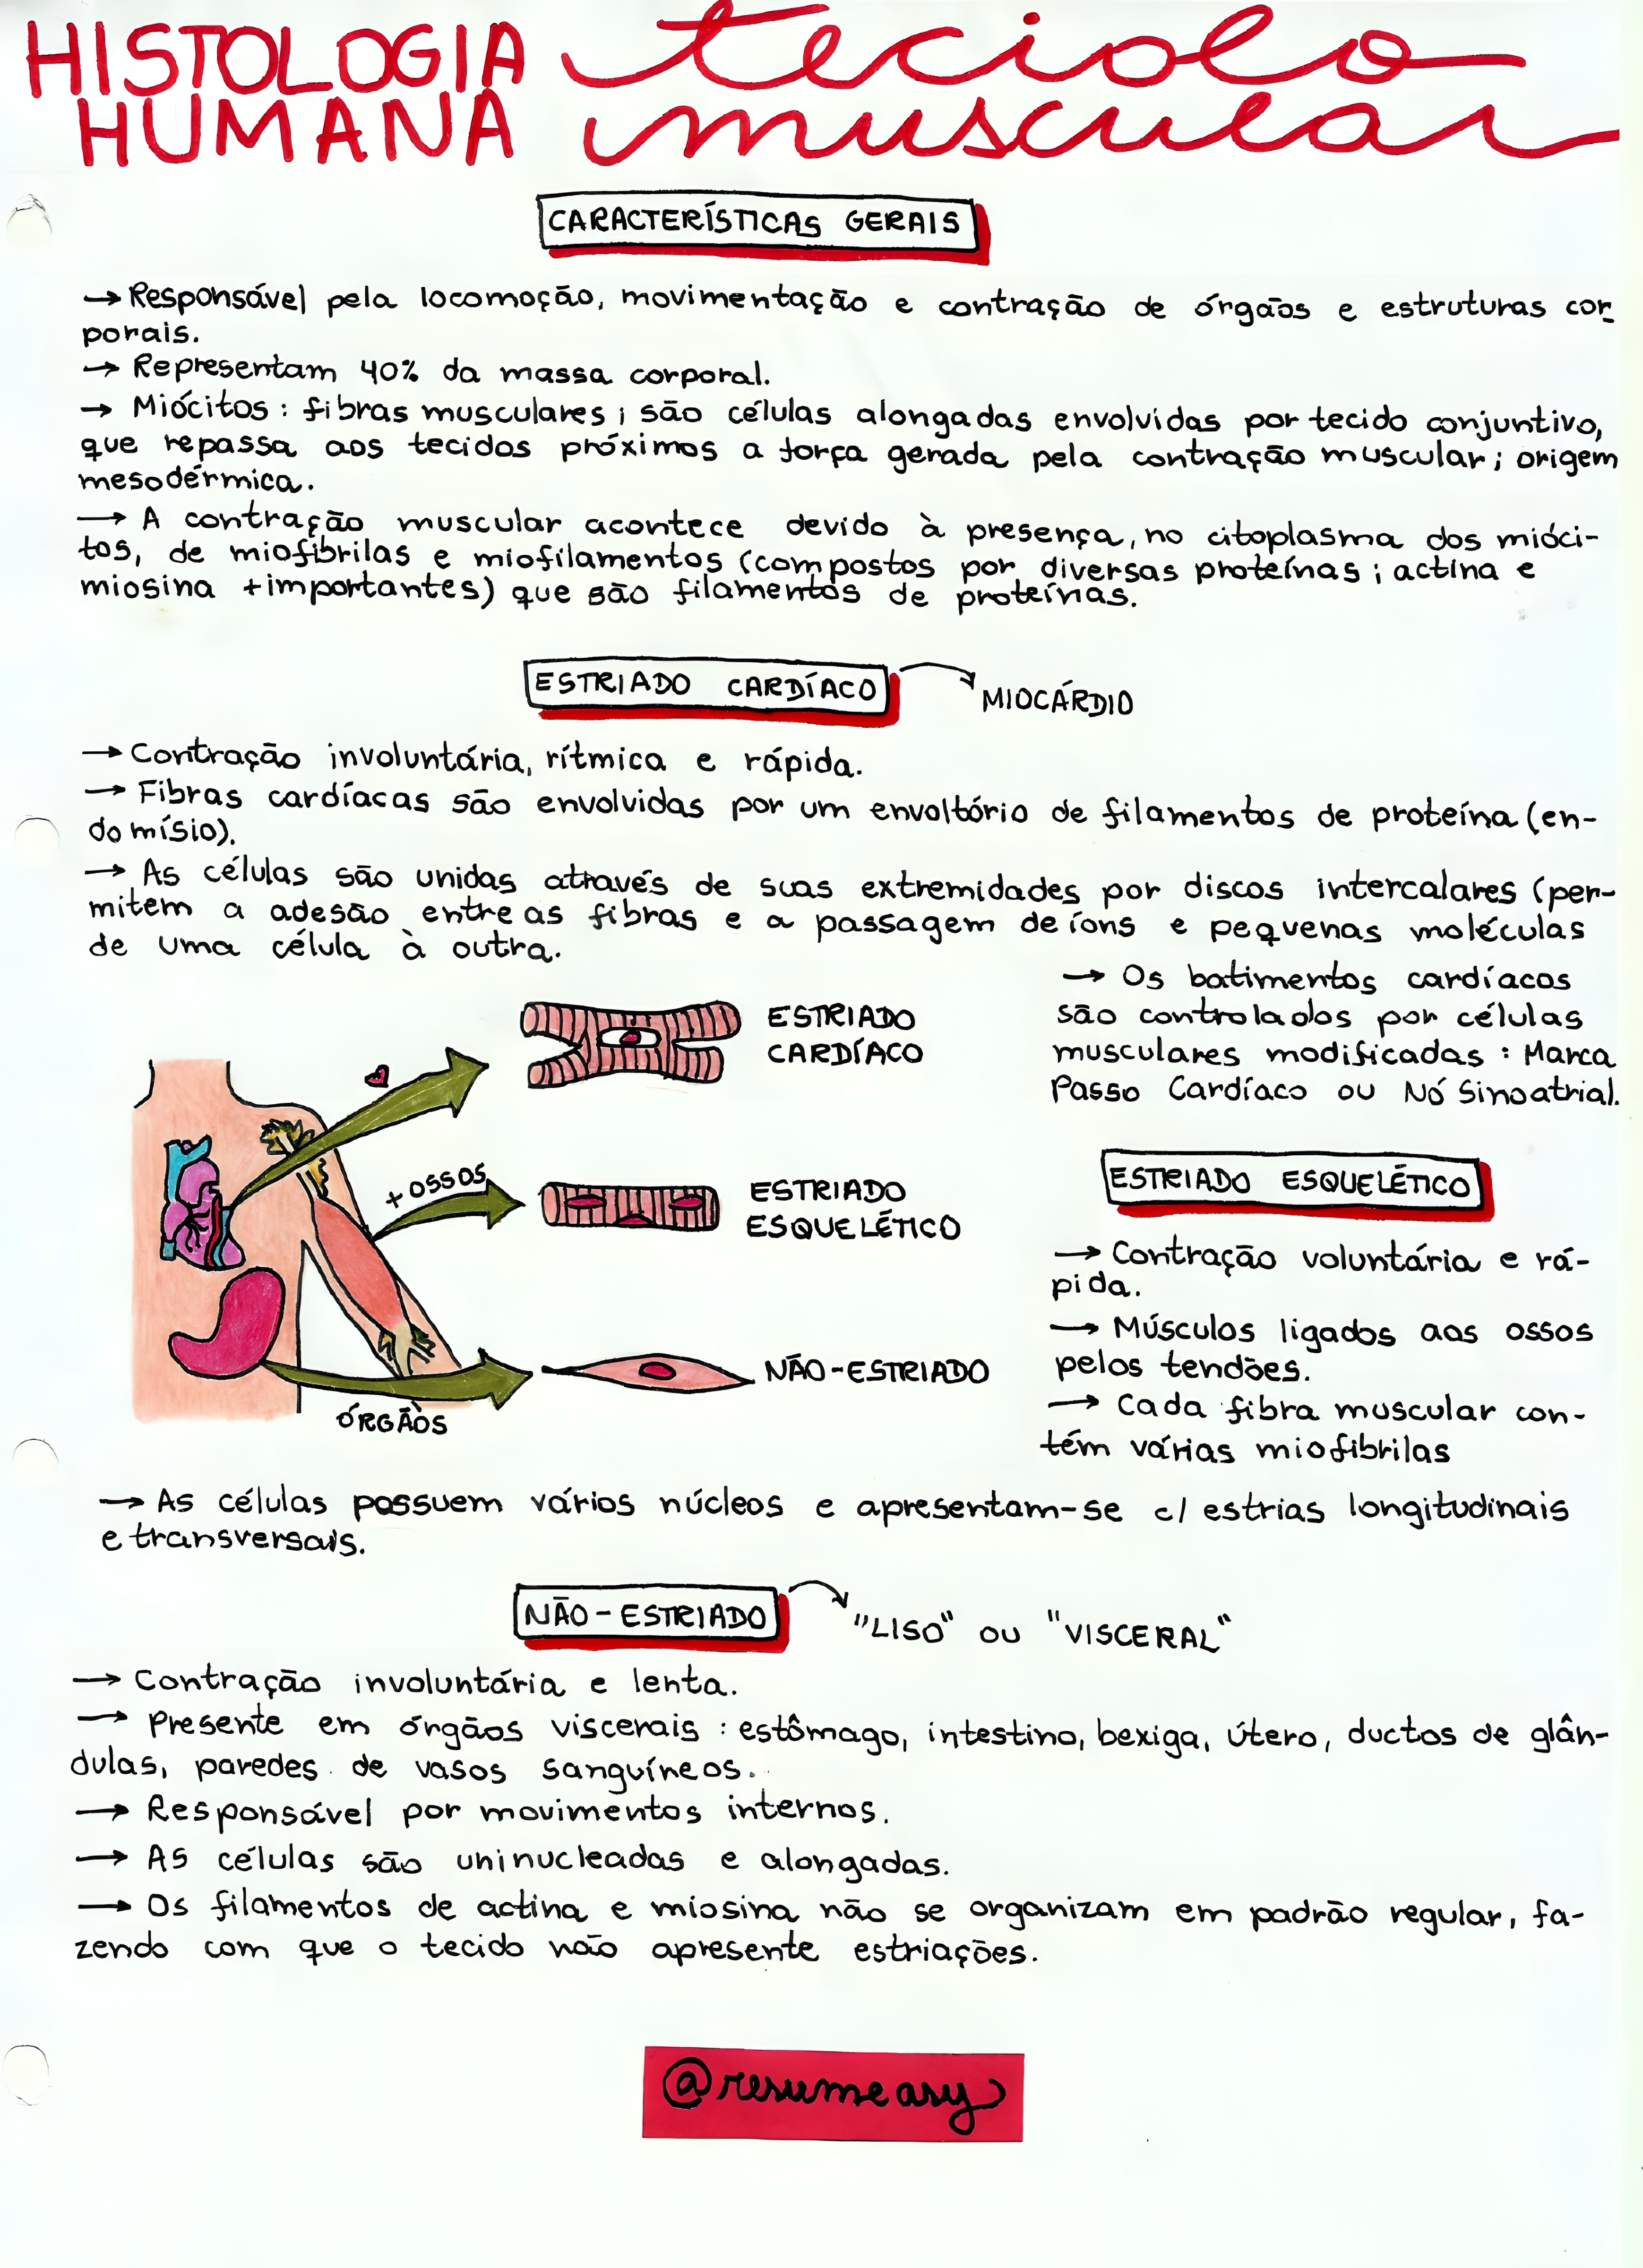 HISTOLOGIA tecido
HUMANA muscular
CARACTERÍSTICAS GERAIS
→ Responsável pela locomoção, movimentação e contração de órgãos e estruturas cor
porais.
→ Representam 40% da massa corporal.
→ Miócitos: fibras musculares; são células alongadas envolvidas por tecido conjuntivo,
que repassa aos tecidos próximos a força gerada pela contração muscular; origem
mesodérmica.
→ A contração muscular acontece devido à presença, no citoplasma dos mióci-
tos, de miofibrilas e miofilamentos (compostos por diversas proteínas; actina e
miosina + importantes) que são filamentos de proteínas.
ESTRIADO CARDÍACO
MIOCÁRDIO
→ Contração involuntária, rítmica e rápida.
→ Fibras cardíacas são envolvidas por um envoltório de filamentos de proteína (en-
domísio).
→ As células são unidas através de suas extremidades por discos intercalares (per-
mitem a adesão entre as fibras e a passagem de íons e pequenas moléculas
de uma célula à outra.
→ Os batimentos cardíacos
são controlados por células
musculares modificadas: Marca
Passo Cardíaco ou Nó Sinoatrial.
ESTRIADO
CARDÍACO
+ OSSOS
ESTRIADO
ESQUELÉTICO
NÃO-ESTRIADO
ÓRGÃOS
ESTRIADO ESQUELÉTICO
→ Contração voluntária e rá-
pida.
→ Músculos ligados aos ossos
pelos tendões.
→ Cada fibra muscular con-
tém várias miofibrilas
→ As células possuem vários núcleos e apresentam-se c/ estrias longitudinais
e transversais.
NÃO-ESTRIADO
"LISO" OU "VISCERAL"
→ Contração involuntária e lenta.
→ Presente em órgãos viscerais: estômago, intestino, bexiga, útero, ductos de glân-
dulas, paredes de vasos sanguíneos.
→ Responsável por movimentos internos.
→ As células são uninucleadas e alongadas.
→ Os filamentos de actina e miosina não se organizam em padrão regular, fa-
zendo com que o tecido não apresente estriações.
@resumeasy